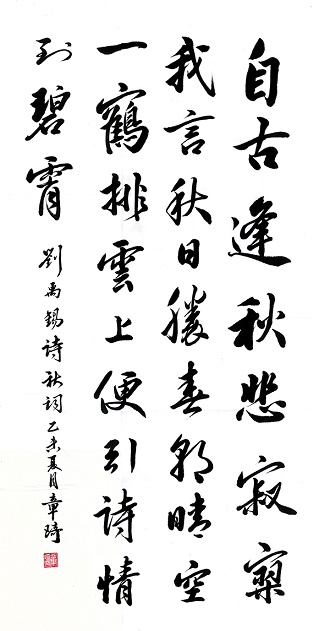 自古逢秋悲寂寥
我言秋日勝春朝晴空
一鶴排雲上便引詩情
到碧霄
劉禹錫詩秋詞乙未夏月章琦